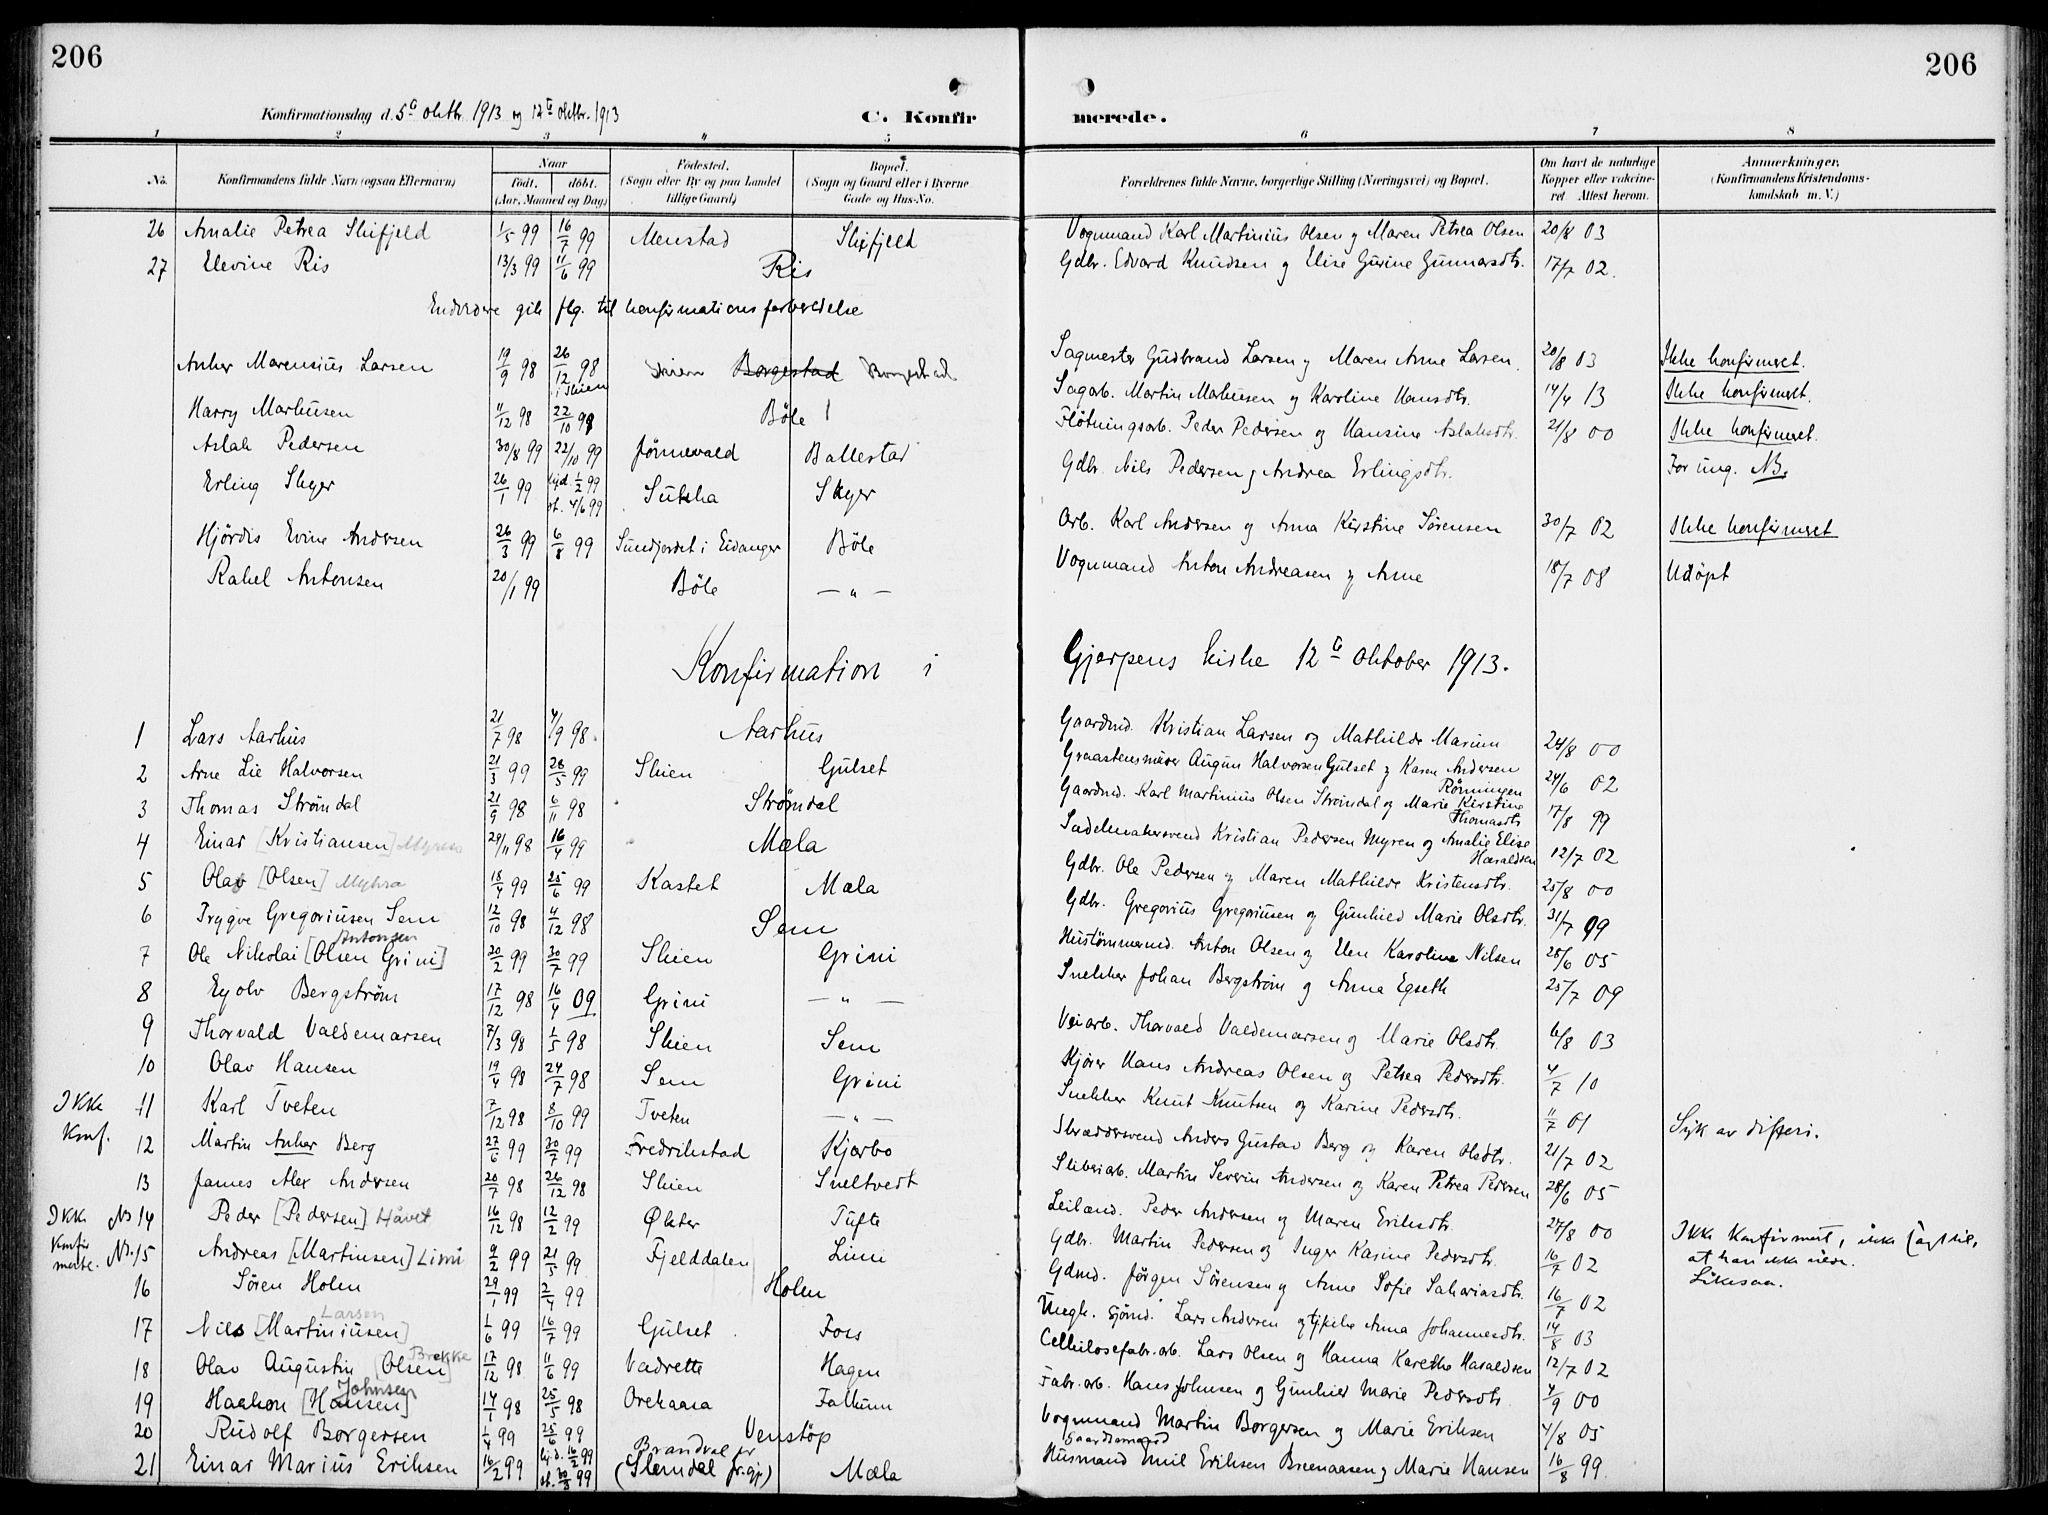 206
206
Konfirmationsdag d. 5te oktbr. 1913 og 12te oktbr. 1913
C. Konfirmerede.
1 2 3 4 5 6 7 8
No. Konfirmandens fulde Navn (ogsaa Efternavn) Naar født. døbt. (Aar, Maaned og Dag) Fødested. (Sogn eller By og paa Landet tillige Gaard) Bopæl. (Sogn og Gaard eller i Byerne Gade og Hus-No. Forældrenes fulde Navne, borgerlige Stilling (Næringsvei) og Bopæl. Om havt de naturlige Kopper eller vakcineret Attest herom. Anmærkninger, (Konfirmandens Kristendomskundskab m. V.)
26 Amalie Petrea Skifjeld 1/5 99 16/7 99 Menstad Skifjeld Vognmand Karl Martinius Olsen og Maren Petrea Olsen 20/8 03
27 Elevine Ris 13/3 99 11/6 99 Ris Gdbr. Edvard Knudsen og Elise Gurine Gunnarsdtr. 17/7 02.
Endvidere gik flg. til konfirmationsforberedelse
Anker Marensius Larsen 19/9 98 26/12 98 i Skien Skien Borgestad Borgestad Sagmester Gudbrand Larsen og Maren Anne Larsen 20/8 03 Ikke konfirmeret.
Harry Markusen 11/12 98 22/10 98 Bøle Sagarb. Martin Markusen og Karoline Hansdtr. 14/4 13 Ikke konfirmeret.
Aslak Pedersen 30/8 99 22/10 99 Jønnevald Ballestad Fløtningsarb. Peder Pedersen og Hansine Aslaksdtr. 21/8 00 Ikke konfirmeret.
Erling Skyer 26/1 99 hjd. 1/2 99 st. 4/6 99 Skyer Gdbr. Nils Pedersen og Andrea Erlingsdtr. For ung. NB.
Hjørdis Evine Andersen 26/3 99 6/8 99 Sundjordet i Eidanger Bøle Arb. Karl Andersen og Anna Kirstine Sørensen 30/7 02 Ikke konfirmeret
Rakel Antonsen 20/1 99 Bøle — " — Vognmand Anton Andreasen og Anne 18/7 08 Udøpt
Konfirmation i Gjerpens kirke 12te Oktober 1913.
1 Lars Aarhus 21/7 98 4/9 98. Aarhus Gaardmd. Kristian Larsen og Mathilde Marium 24/8 00
2 Arne Lie Halvorsen 21/3 99 28/5 99 Skien Gulset Graastensmurer Augun Halvorsen Gulset og Karen Andersen Rønningen 24/6 02
3 Thomas Strømdal 21/9 98 6/11 98 Strømdal Gaardmd. Karl Martinius Olsen Strømdal og Marie Kirstine Thomasdtr 17/8 99
4 Einar [Kristiansen] Myren 29/11 98 16/4 99 Mæla Sadelmakersvend Kristian Pedersen Myren og Amalie Elise Haraldsen 12/7 02
5 Olav [Olsen] Myhra 18/4 99 25/6 99 Kastet Mæla Gdbr. Ole Pedersen og Maren Mathilde Kristensdtr. 25/8 00
6 Trygve Gregoriusen Sem 12/10 98 4/12 98 Sem Gdbr. Gregorius Gregoriusen og Gunhild Marie Olsdtr. 31/7 99
7 Ole Nikolai [Olsen Grini] Antonsen 20/2 99 30/7 99 Skien Grini Hustømmermd. Anton Olsen og Elen Karoline Nilsen 28/6 05
8 Eyolv Bergstrøm 17/12 98 16/4 09. Grini — " — Snekker Johan Bergstrøm og Anna Egseth 25/7 09
9 Thorvald Valdemarsen 7/3 98 1/5 98 Skien Sem Veiarb. Thorvald Valdemarsen og Marie Olsdtr. 6/8 03
10 Olav Hansen 19/4 98 24/7 98 Sem Grini Kjører Hans Andreas Olsen og Petrea Pedersdtr. 4/7 10
Ikke Konf. 11 Karl Tveten 7/12 98 8/10 99 Tveten — " — Snekker Knut Knutsen og Karine Pedersdtr. 11/7 01 Syk av difteri.
12 Martin Anker Berg 27/6 99 30/7 99 Fredrikstad Kjærbo Skræddersvend Anders Gustav Berg og Karen Olsdtr. 21/7 02
13 James Alex Andersen 20/7 98 26/12 98 Skien Sneltvedt Sliberiarb. Martin Severin Andersen og Karen Petrea Pedersen 28/6 05
Ikke Konfirmerte. No 14 Peder [Pedersen] Håvet 16/12 98 12/2 99 Økter Tufte Leiland. Peder Andersen og Maren Eriksdtr. 27/8 00 Ikke Konfirmert, at han ikke
No. 15 Andreas [Martinsen] Limi 9/2 99 21/5 99 Fjelddalen Limi Gdbr. Martin Pedersen og Inger Karine Pedersdtr. 16/7 02 Likesaa.
16 Søren Holen 29/1 99 2/4 99 Holen Gdmd. Jørgen Sørensen og Anne Sofie Sakariasdtr. 16/7 02
17 Nils [Martiniusen] Larsen 1/6 99 16/7 99 Gulset Fors Ungk. Lars Andersen og pike Anna Johannesdtr. 14/8 03
18 Olav Augustin [Olsen] Brekke 17/12 98 11/6 99 Vadrette Hagen Cellulosefabr.arb. Lars Olsen og Hanna Karethe Haraldsen 12/7 02
19 Haakon [Hansen] Johnsen 14/1 98 25/5 98 Orekaasa Falkum Fabr.arb. Hans Johnsen og Gunhild Marie Pedersdtr. 4/9 00
20 Rudolf Borgersen 1/4 99 25/6 99 Venstøp Vognmand Martin Borgersen og Marie Eriksen 4/8 05
21 Einar Marius Eriksen 16/2 99 hjd. 16/2 99 st. 20/8 99 Brandval (Slemdal pr.gj.) Mæla Husmand Emil Eriksen Breenaasen og Marie Hansen 16/8 99.